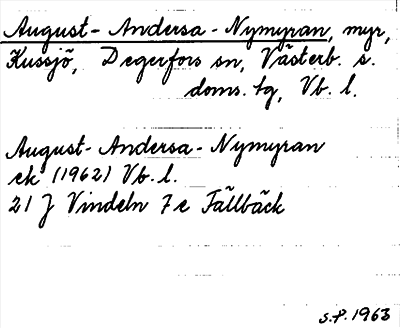 August-Andersa-Nymyran, myr,
Kussjö, Degerfors sn, Västerb. s.
doms. tg, Vb. l.
August-Andersa-Nymyran
ek (1962) Vb. l.
21 J Vindeln 7e Fällbäck
S.P. 1963